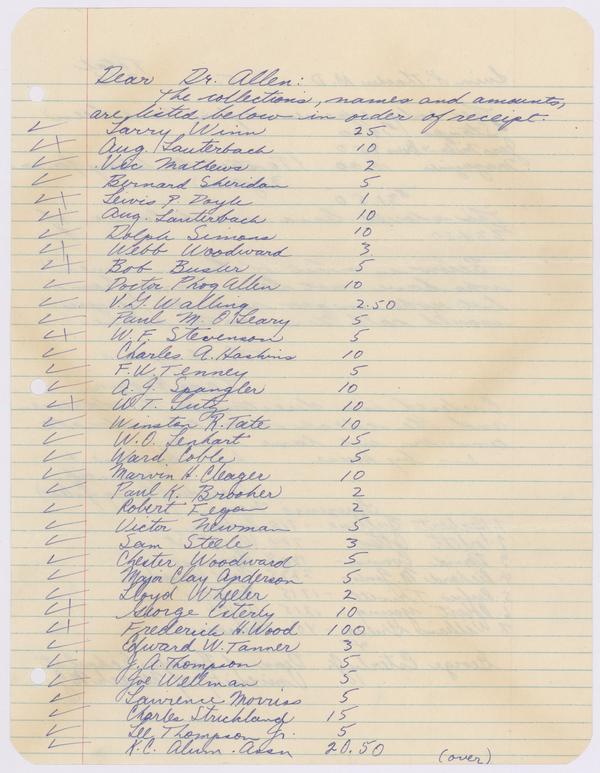 Dear Dr. Allen:
The collections, names and amounts,
are listed below in order of receipt.
Larry Winn 25
Aug. Lauterbach 10
Vic Mathews 2
Bernard Sheridan 5
Lewis P. Doyle 1
Aug. Lauterbach 10
Dolph Simons 10
Webb Woodward 3
Bob Busler 5
Doctor Phog Allen 10
V.G. Walling 2.50
Paul M. O'Leary 5
W.F. Stevenson 5
Charles A. Haskins 10
F.W. Tenney 5
A.J. Spangler 10
W.T. Lutz 10
Winston R. Tate 10
W.O. Lenhart 15
Ward Coble 5
Marvin H. Cleager 10
Paul K. Brooker 2
Robert Fegan 2
Victor Newman 5
Sam Steele 3
Chester Woodward 5
Major Clay Anderson 5
Lloyd Wheeler 2
George Esterly 10
Frederick H. Wood 100
Edward W. Tanner 3
J.A. Thompson 5
Joe Wellman 5
Lawrence Morriss 5
Charles Strickland 15
Lee Thompson Jr. 5
K.C. Alum. Assn 20.50 (over)